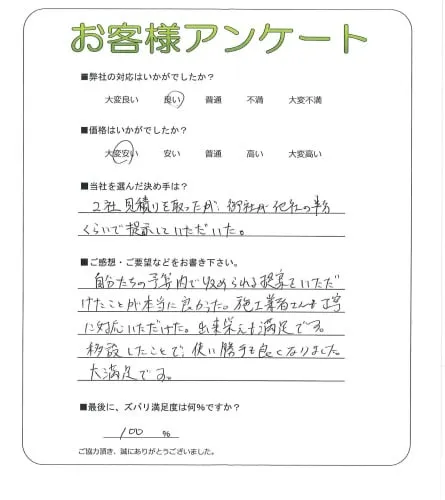 お客様アンケート
■弊社の対応はいかがでしたか？
大変良い　良い　普通　不満　大変不満
■価格はいかがでしたか？
大変安い　安い　普通　高い　大変高い
■当社を選んだ決め手は？
2社見積りを取ったが、御社が他社の半分
くらいで提示していただいた。
■ご感想・ご要望などをお書き下さい。
自分たちの予算内で収められる提案をいただ
けたことが本当に良かった。施工業者さんも丁寧
に対応いただけた。出来栄えも満足です。
移設したことで、使い勝手も良くなりました。
大満足です。
■最後に、ズバリ満足度は何%ですか？
100 %
ご協力頂き、誠にありがとうございました。